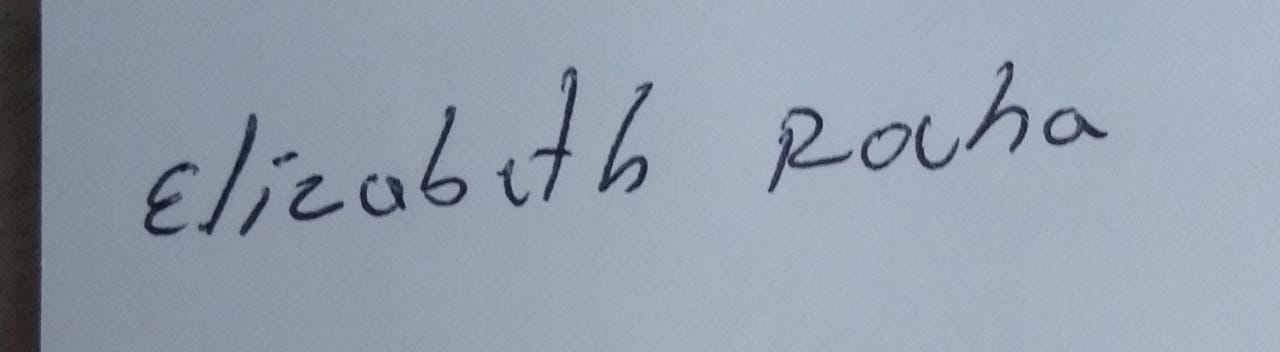 Elizabeth Rocha